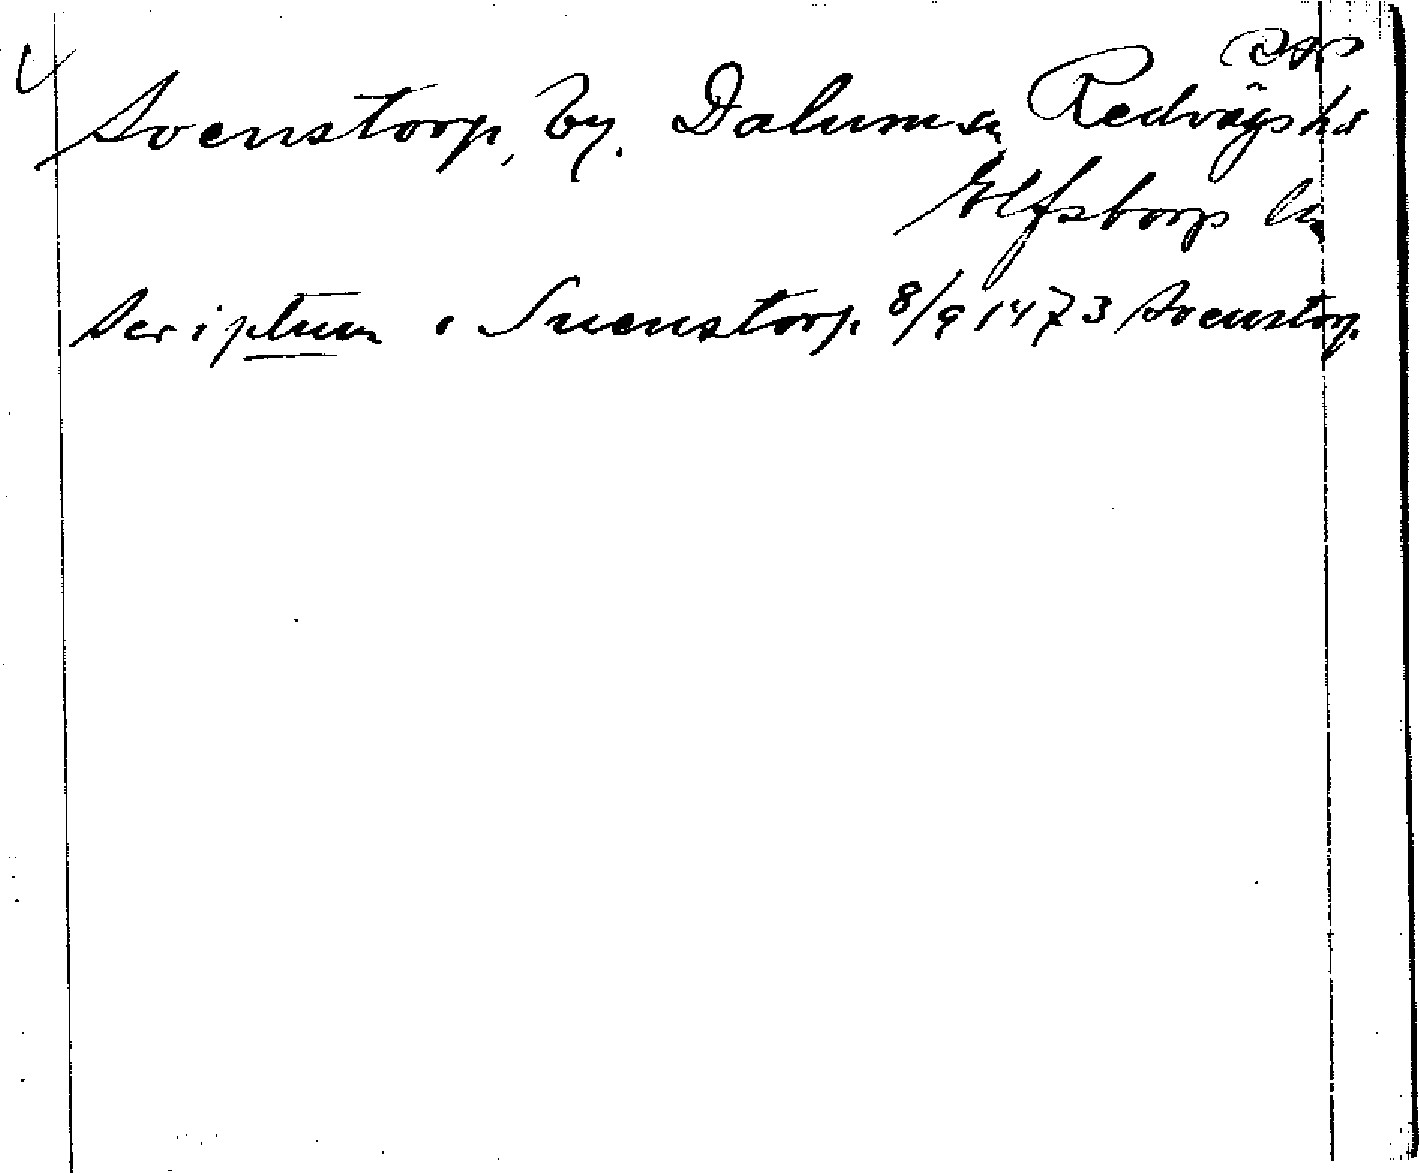 Svenstorp, by. Dalum sn Redvägs hd
Elfsborgs ln
Scriptum i Suenstorp 8/9 1473 Svenstorp